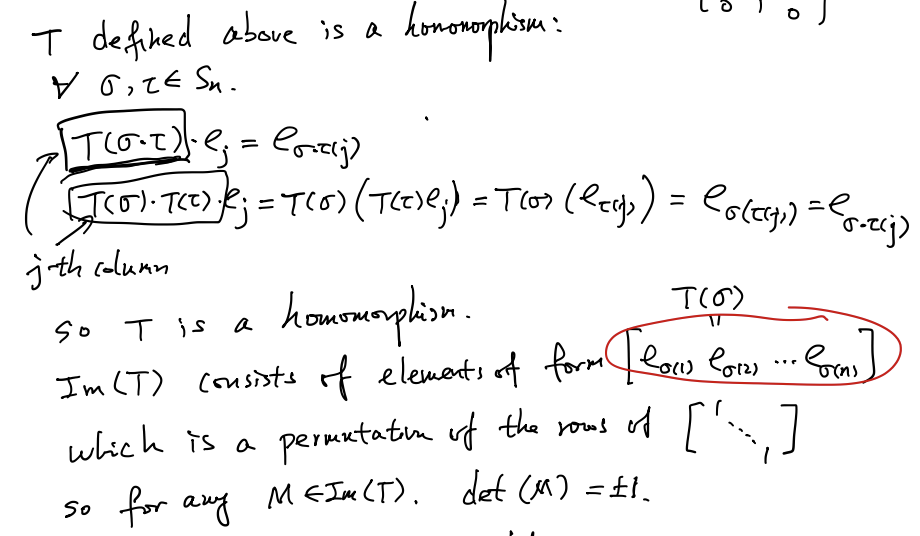 [ 0 1 0 ]
T defined above is a homomorphism:
∀ σ, τ ∈ Sn.
T(σ·τ)·e_j = e_{σ·τ(j)}
T(σ)·T(τ)·e_j = T(σ)(T(τ)e_j) = T(σ)(e_{τ(j)}) = e_{σ(τ(j))} = e_{σ·τ(j)}
j-th column
so T is a homomorphism.
T(σ)
"
Im(T) consists of elements of form [e_{σ(1)} e_{σ(2)} ... e_{σ(n)}]
which is a permutation of the rows of [1 ⋱ 1]
so for any M ∈ Im(T). det(M) = ±1.